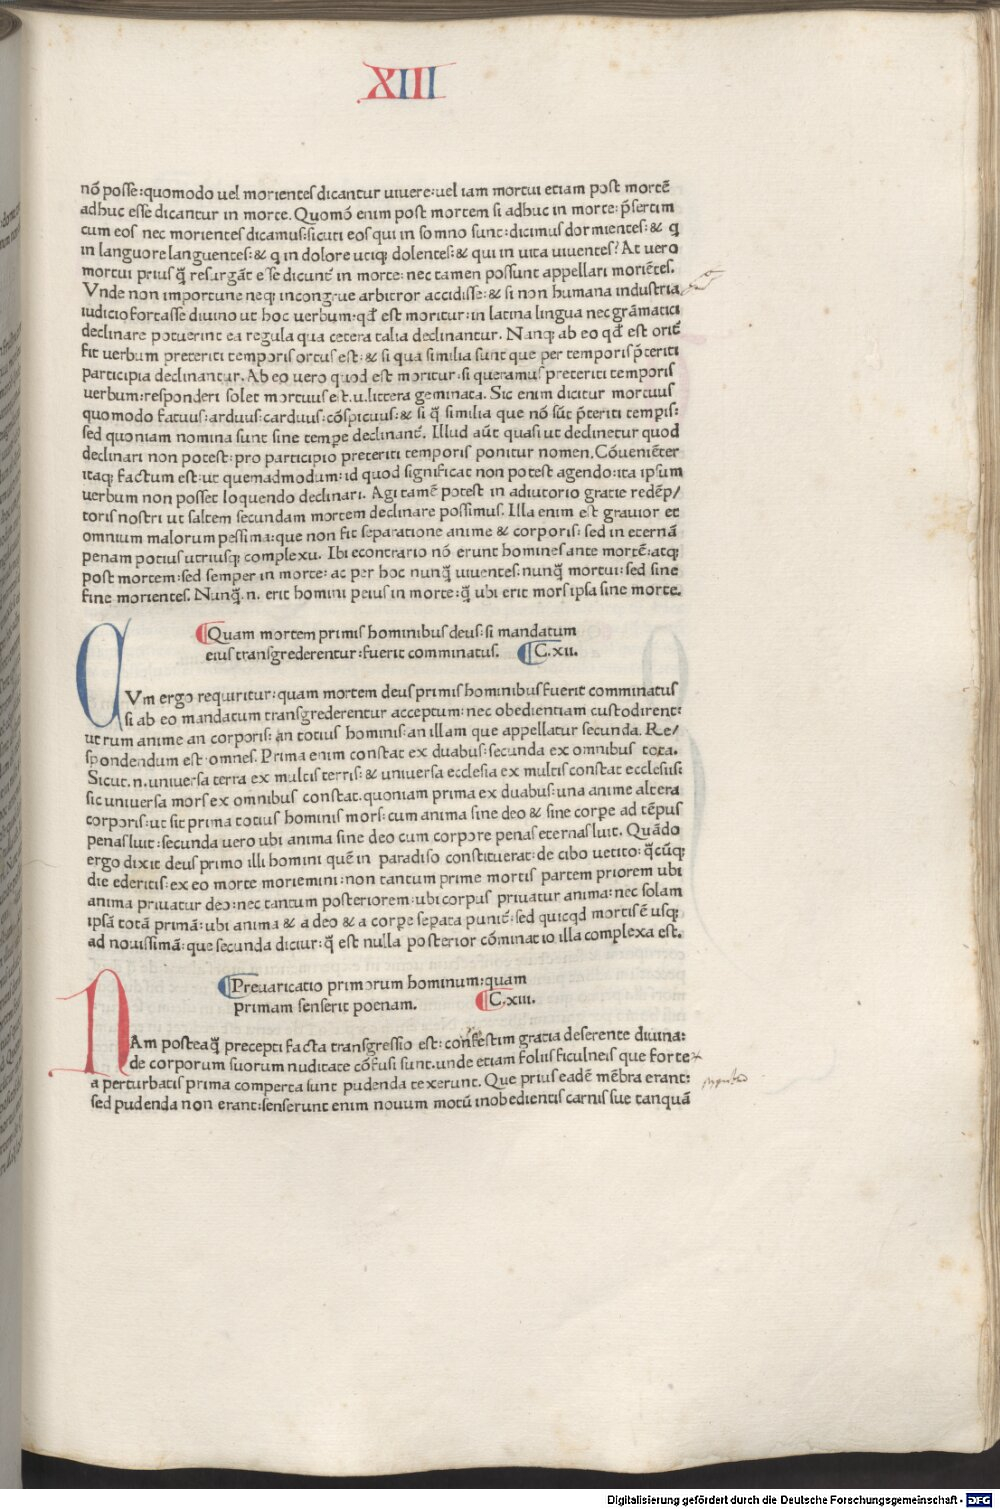 XIII
nō posse:quomodo uel morientes dicantur uiuere:uel iam mortui etiam post mortē
adhuc esse dicantur in morte. Quomō enim post mortem si adhuc in morte:p̄sertim
cum eos nec morientes dicamus:sicuti eos qui in somno sunt:dicimus dormientes:& q
in languore languentes:& q in dolore utiq; dolentes:& qui in uita uiuentes? At uero
mortui prius q̄ resurgāt esse dicunt̄ in morte:nec tamen possunt appellari moriētes.
Vnde non importune neq; incongrue arbitror accidisse:& si non humana industria
iudicio fortasse diuino ut hoc uerbum:qd̄ est moritur:in latina lingua nec grāmatici
declinare potuerint ea regula qua cetera talia declinantur. Nanq; ab eo qd̄ est orit̄
fit uerbum preteriti temporis ortus est:& si qua similia sunt que per temporis p̄teriti
participia declinantur. Ab eo uero quod est moritur:si queramus preteriti temporis
uerbum:responderi solet mortuus est.u.littera geminata. Sic enim dicitur mortuus
quomodo fatuus:arduus:carduus:cōspicuus:& si q̄ similia que nō sūt p̄teriti tempis:
sed quoniam nomina sunt sine tempe declinant̄. Illud aūt quasi ut declinetur quod
declinari non potest:pro participio preteriti temporis ponitur nomen. Cōueniēter
itaq; factum est:ut quemadmodum:id quod significat non potest agendo:ita ipsum
uerbum non posset loquendo declinari. Agi tamē potest in adiutorio gratie redēp/
toris nostri ut saltem secundam mortem declinare possimus. Illa enim est grauior et
omnium malorum pessima:que non fit separatione anime & corporis:sed in eternā
penam potius utriusq; complexu. Ibi econtrario nō erunt homines ante mortē:atq;
post mortem:sed semper in morte:ac per hoc nunq̄ uiuentes.nunq̄ mortui:sed sine
fine morientes. Nunq̄.n. erit homini peius in morte:q̄ ubi erit mors ipsa sine morte.
Quam mortem primis hominibus deus:si mandatum
eius transgrederentur:fuerit comminatus. C.xii.
CVm ergo requiritur:quam mortem deus primis hominibus fuerit comminatus
si ab eo mandatum transgrederentur acceptum:nec obedientiam custodirent:
utrum anime an corporis:an totius hominis:an illam que appellatur secunda. Re/
spondendum est omnes. Prima enim constat ex duabus:secunda ex omnibus tota.
Sicut.n.uniuersa terra ex multis terris:& uniuersa ecclesia ex multis constat ecclesiis:
sic uniuersa mors ex omnibus constat.quoniam prima ex duabus:una anime altera
corporis:ut sit prima totius hominis mors:cum anima sine deo & sine corpe ad tēpus
penas luit:secunda uero ubi anima sine deo cum corpore penas eternas luit. Quādo
ergo dixit deus primo illi homini quē in paradiso constituerat:de cibo uetito:q̄cūq;
die ederitis:ex eo morte moriemini:non tantum prime mortis partem priorem ubi
anima priuatur deo:nec tantum posteriorem:ubi corpus priuatur anima:nec solam
ipsā totā primā:ubi anima & a deo & a corpe sepata punit̄:sed quicqd mortis ē usq;
ad nouissimā:que secunda dicitur:q̄ est nulla posterior cōminatio illa complexa est.
Preuaricatio primorum hominum:quam
primam senserit poenam. C.xiii.
NAm posteaq̄ precepti facta transgressio est:confestim gratia deserente diuina:
de corporum suorum nuditate cōfusi sunt.unde etiam foliis ficulneis que forte
a perturbatis prima comperta sunt pudenda texerunt. Que prius eadē mēbra erant:
sed pudenda non erant:senserunt enim nouum motū inobedientis carnis sue tanquā
Digitalisierung gefördert durch die Deutsche Forschungsgemeinschaft - DFG